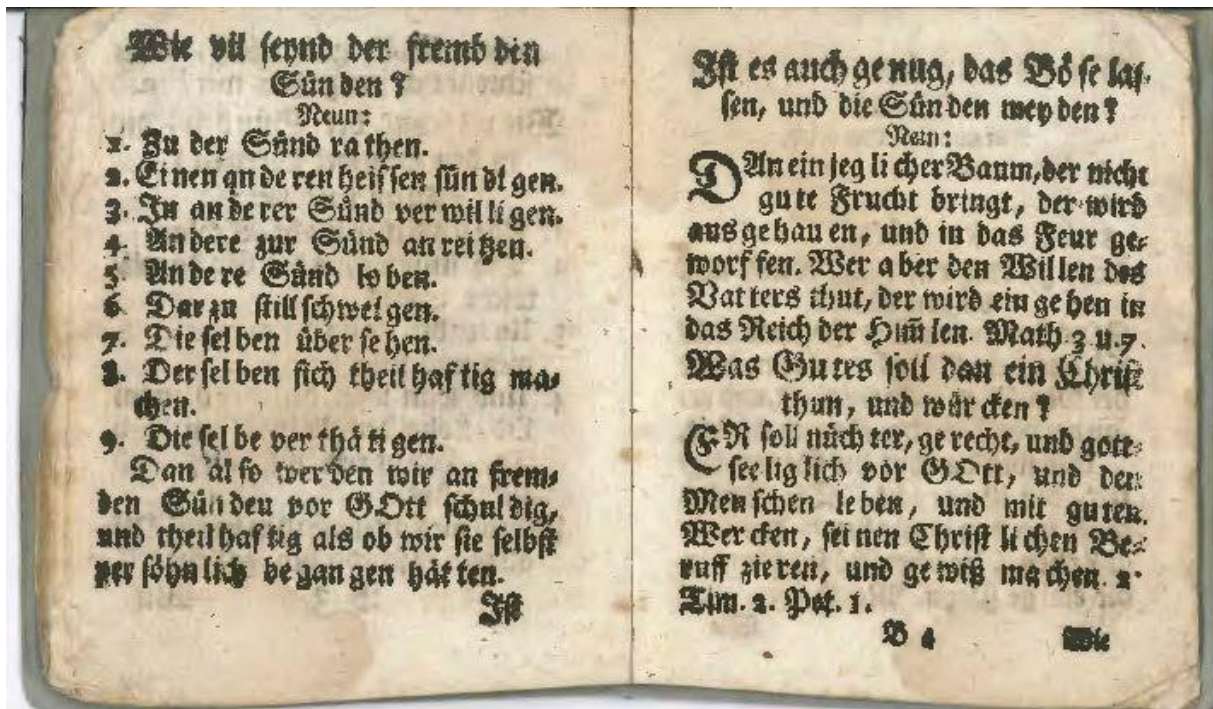 Wie vil seynd der fremb den
Sün den?
Neun:
1. Zu der Sünd ra then.
2. Ei nen an de ren heis sen sün di gen.
3. In an de rer Sünd ver wil li gen.
4. An dere zur Sünd an rei tzen.
5. An de re Sünd lo ben.
6. Dar zu still schwei gen.
7. Die sel ben über se hen.
8. Der sel ben sich theil haf tig ma-
chen.
9. Die sel be ver thä ti gen.
Dan al so wer den wir an frem-
den Sün den vor GOtt schul dig,
und theil haf tig als ob wir sie selbst
per söhn lich be gan gen hät ten.
Ist
Ist es auch ge nug, das Bö se las-
sen, und die Sün den mey den?
Nein:
DAn ein jeg li cher Baum, der nicht
gu te Frucht bringt, der wird
aus ge hau en, und in das Feur ge-
worf fen. Wer a ber den Wil len des
Vat ters thut, der wird ein ge hen in
das Reich der Him̃ len. Math. 3 u. 7.
Was Gu tes soll dan ein Christ
thun, und wür cken?
ER soll nüch ter, ge recht, und gott-
see lig lich vor GOtt, und den
Men schen le ben, und mit gu ten
Wer cken, sei nen Christ li chen Be-
ruff zie ren, und ge wiß ma chen. 2.
Tim. 2. Pet. 1.
B 4 Wie